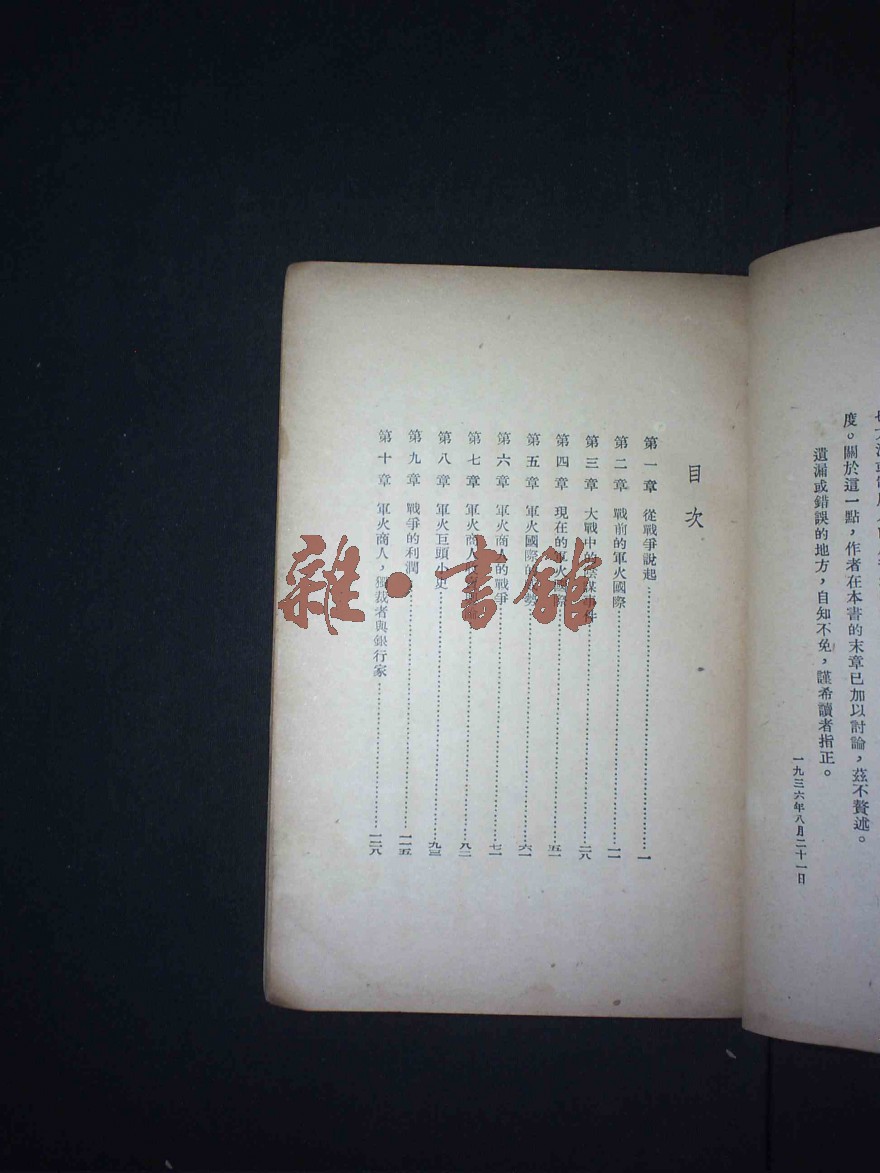 度。關於這一點，作者在本書的末章已加以討論，茲不贅述。
遺漏或錯誤的地方，自知不免，謹希讀者指正。
一九三六年八月二十一日
目次
第一章 從戰爭說起……一
第二章 戰前的軍火國際……一一
第三章 大戰中的陰謀事件……二八
第四章 現在的軍火國際……五一
第五章 軍火國際的……六一
第六章 軍火商人的戰爭……七一
第七章 軍火商人……八二
第八章 軍火巨頭小史……九三
第九章 戰爭的利潤……一一五
第十章 軍火商人，獨裁者與銀行家……一二八
雜·書館